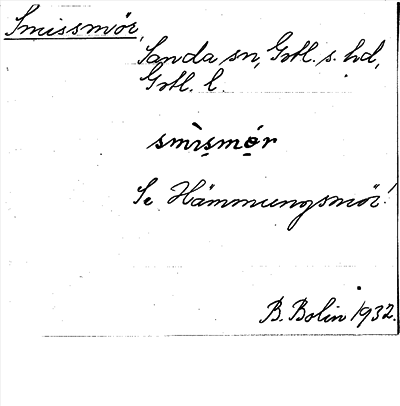 Smissmör,
Sanda sn, Gotl. s. hd,
Gotl. l
smìs̩mø̜r
Se Hämmungsmör!
B. Bolin 1932.